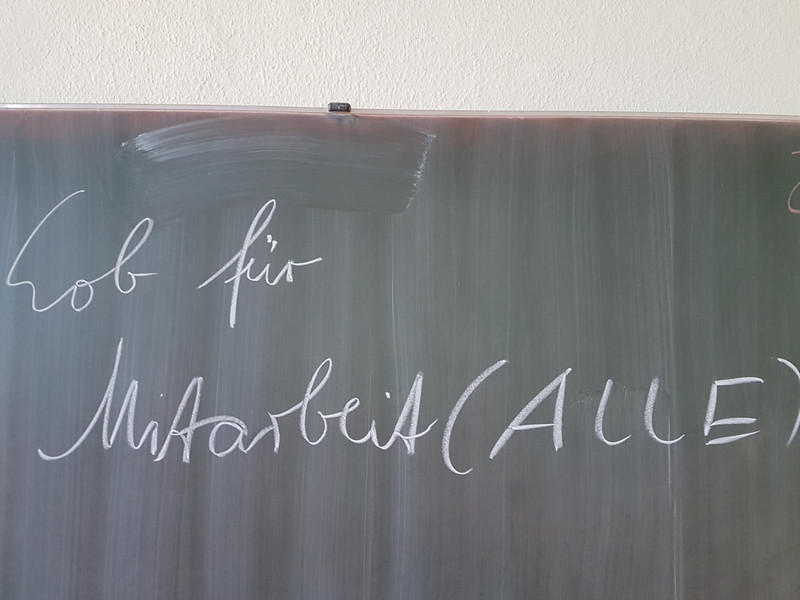 Lob für
Mitarbeit (ALLE)